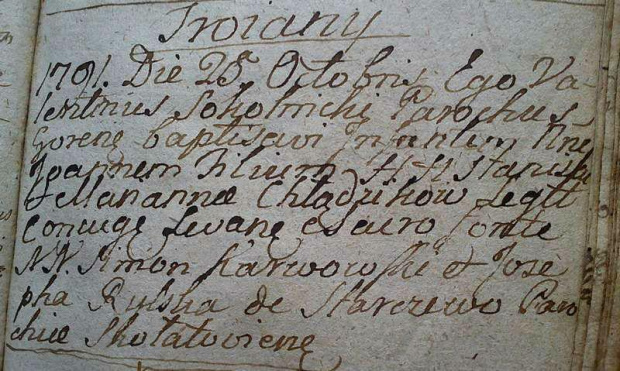 Troiany
1791. Die 25 Octobris Ego Va-
lentinus Sokolnicki Parochus
Gorenę baptisavi Infantem Nne
Joannem Filium H.H Stanisłai
& Mariannæ Chładzikow Legit
Conjugę Levanę e Sacro Fonte
NN. Simon Karwowski et Jose
pha Rulska de Starczewo Paro
chiæ Skołatovienę